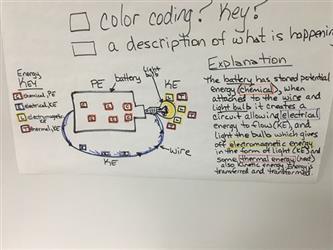 color coding? Key?
a description of what is happenin
Energy
KEY
C chemical, PE
E electrical, KE
electromagnetic
KE
T thermal, KE
PE
battery
light
bulb
KE
wire
KE
Explanation
The battery has stored potential
energy (chemical), when
attached to the wire and
light bulb it creates a
circuit allowing electrical
energy to flow (KE), and
light the bulb which gives
off electromagnetic energy
in the form of light (KE) and
some thermal energy (heat)
also kinetic energy. Energy is
transferred and transformed.